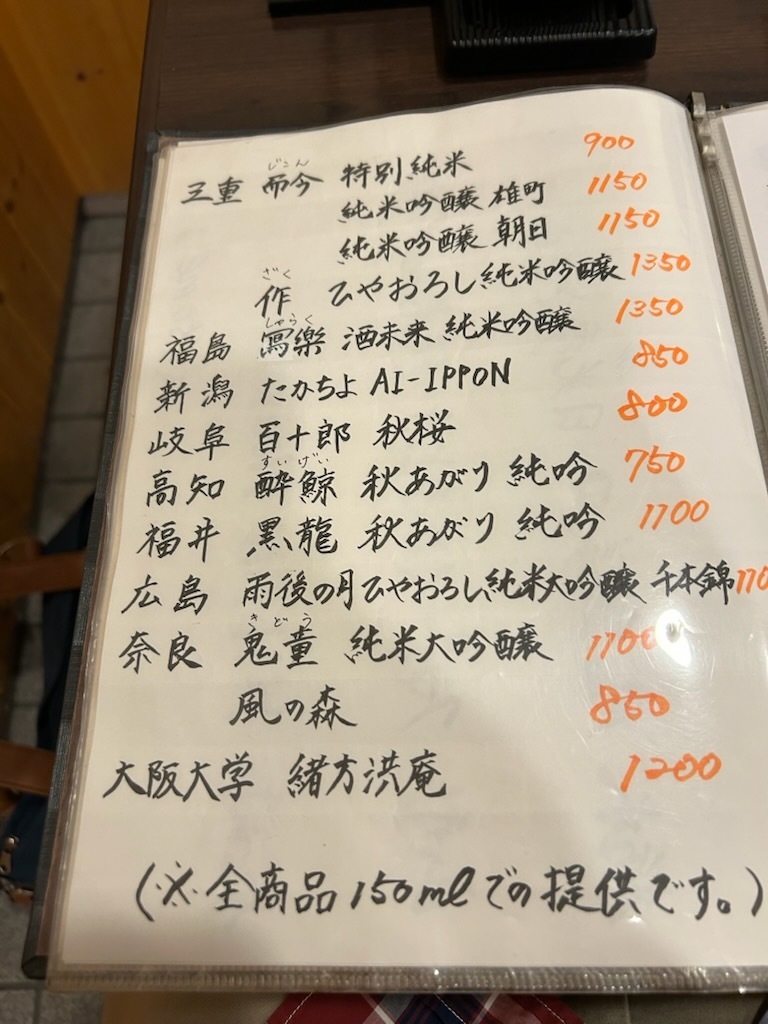 三重 而今 特別純米 900
じこん
純米吟醸 雄町 1150
純米吟醸 朝日 1150
ざく
作 ひやおろし純米吟醸 1350
しゃらく
福島 寫樂 酒未来 純米吟醸 1350
新潟 たかちよ AI-IPPON 850
岐阜 百十郎 秋桜 800
すいげい
高知 酔鯨 秋あがり 純吟 750
福井 黒龍 秋あがり 純吟 1100
広島 雨後の月ひやおろし純米大吟醸 千本錦 110
きどう
奈良 鬼童 純米大吟醸 1100
風の森 850
大阪大学 緒方洪庵 1200
(※全商品150mlでの提供です。)